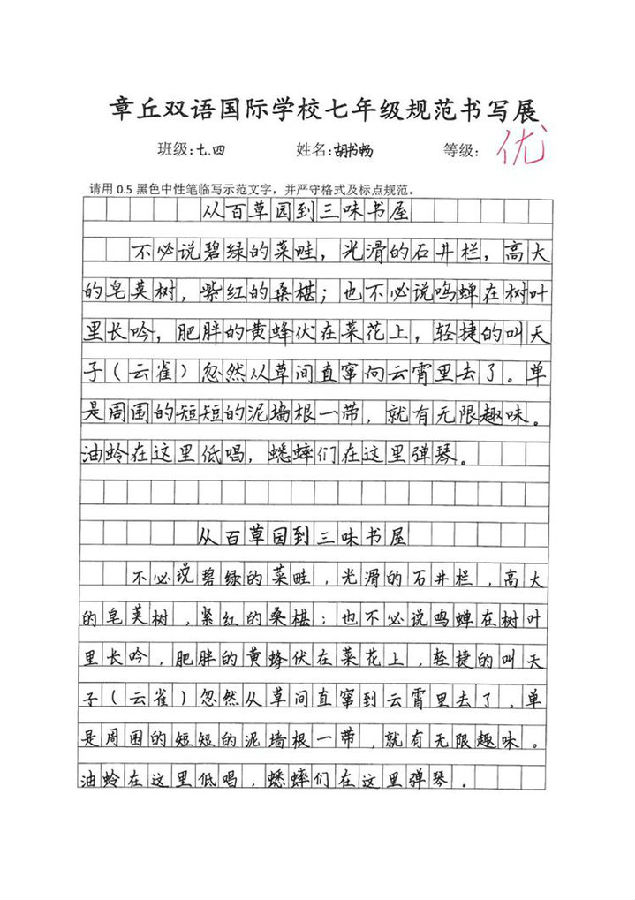 章丘双语国际学校七年级规范书写展
班级:七.四 姓名:胡书畅 等级: 优
请用0.5黑色中性笔临写示范文字，并严守格式及标点规范。
从百草园到三味书屋
不必说碧绿的菜畦，光滑的石井栏，高大
的皂荚树，紫红的桑椹；也不必说鸣蝉在树叶
里长吟，肥胖的黄蜂伏在菜花上，轻捷的叫天
子（云雀）忽然从草间直窜向云霄里去了。单
是周围的短短的泥墙根一带，就有无限趣味。
油蛉在这里低唱，蟋蟀们在这里弹琴。
从百草园到三味书屋
不必说碧绿的菜畦，光滑的石井栏，高大
的皂荚树，紧红的桑椹；也不必说鸣蝉在树叶
里长吟，肥胖的黄蜂伏在菜花上，轻捷的叫天
子（云雀）忽然从草间直窜到云霄里去了，单
是周围的短短的泥墙根一带，就有无限趣味。
油蛉在这里低唱，蟋蟀们在这里弹琴．